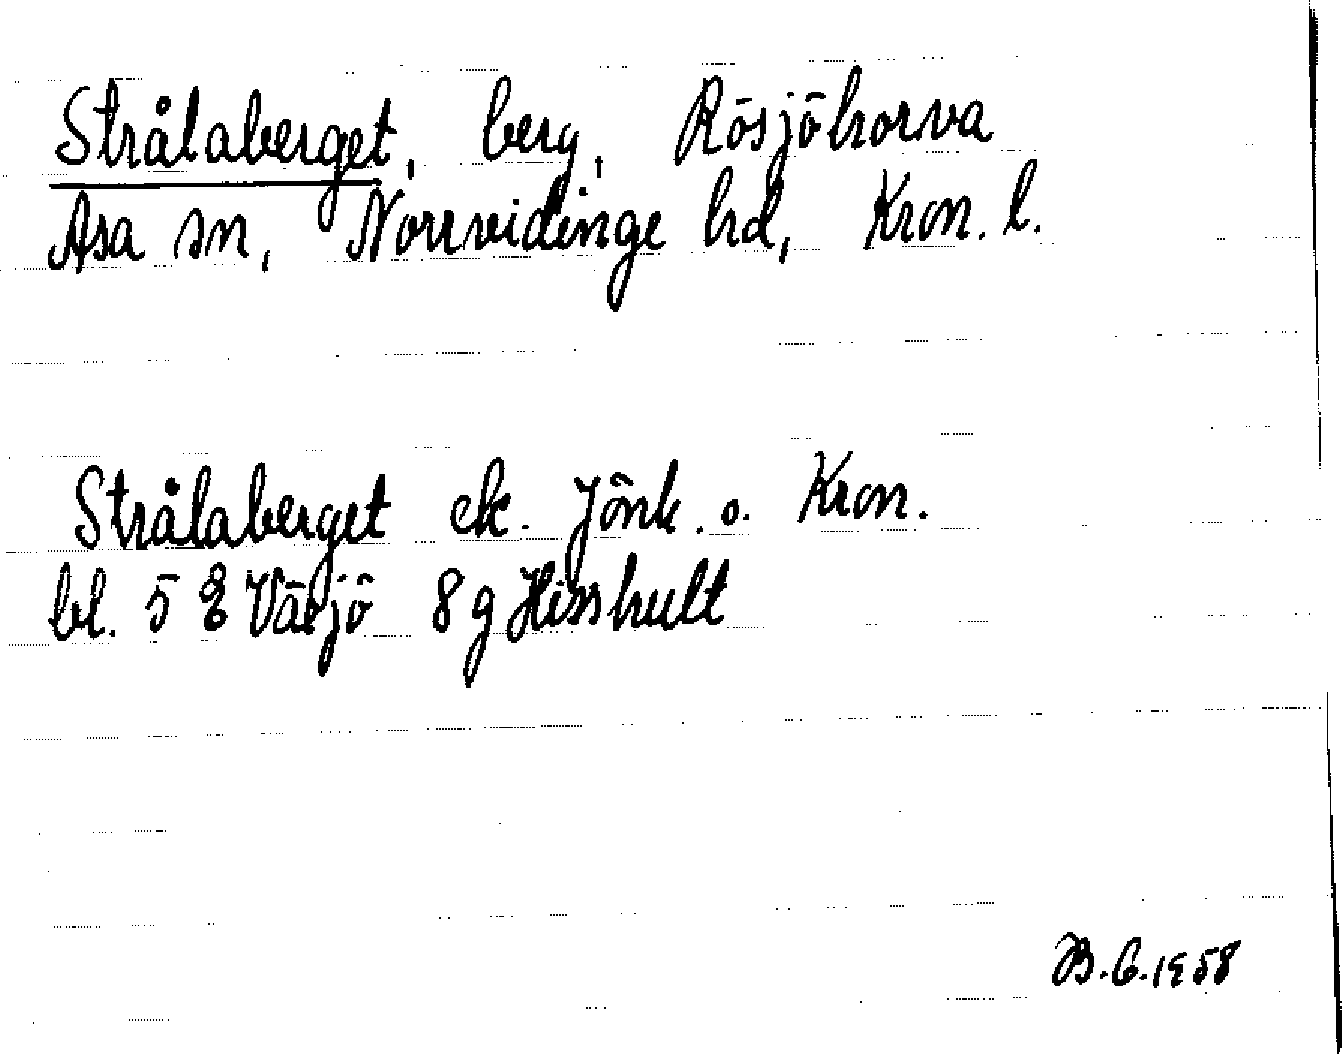 Strålaberget, berg, Rösjöhorva
Asa sn, Norrvidinge hd, Kron. l.
Strålaberget ek. Jönk. o. Kron.
bl. 5 E Växjö 8 g Hisshult
B.G. 1958